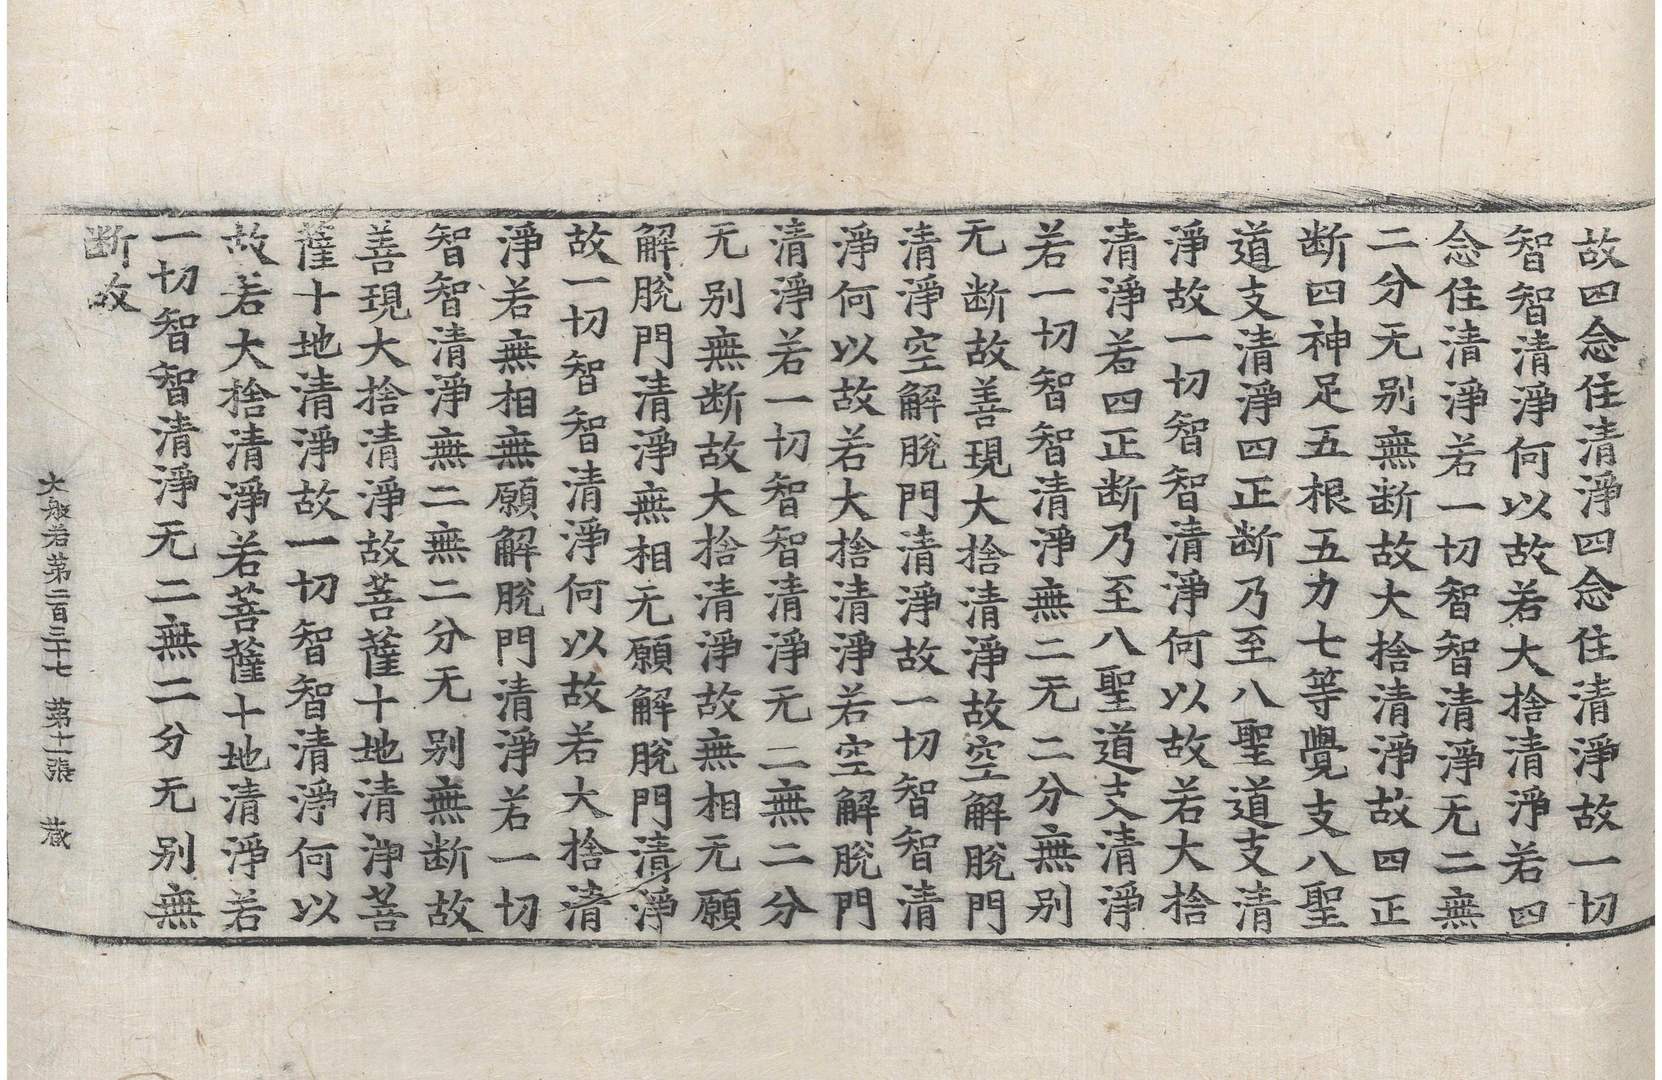 故四念住清淨四念住清淨故一切
智智清淨何以故若大捨清淨若四
念住清淨若一切智智清淨无二無
二分无別無断故大捨清淨故四正
断四神足五根五力七等覺支八聖
道支清淨四正断乃至八聖道支清
淨故一切智智清淨何以故若大捨
清淨若四正断乃至八聖道支清淨
若一切智智清淨無二无二分無別
无断故善現大捨清淨故空解脫門
清淨空解脫門清淨故一切智智清
淨何以故若大捨清淨若空解脫門
清淨若一切智智清淨无二無二分
无別無断故大捨清淨故無相无願
解脫門清淨無相无願解脫門清淨
故一切智智清淨何以故若大捨清
淨若無相無願解脫門清淨若一切
智智清淨無二無二分无別無断故
善現大捨清淨故菩薩十地清淨菩
薩十地清淨故一切智智清淨何以
故若大捨清淨若菩薩十地清淨若
一切智智清淨无二無二分无別無
断故
大般若第二百三十七 第十一張 藏